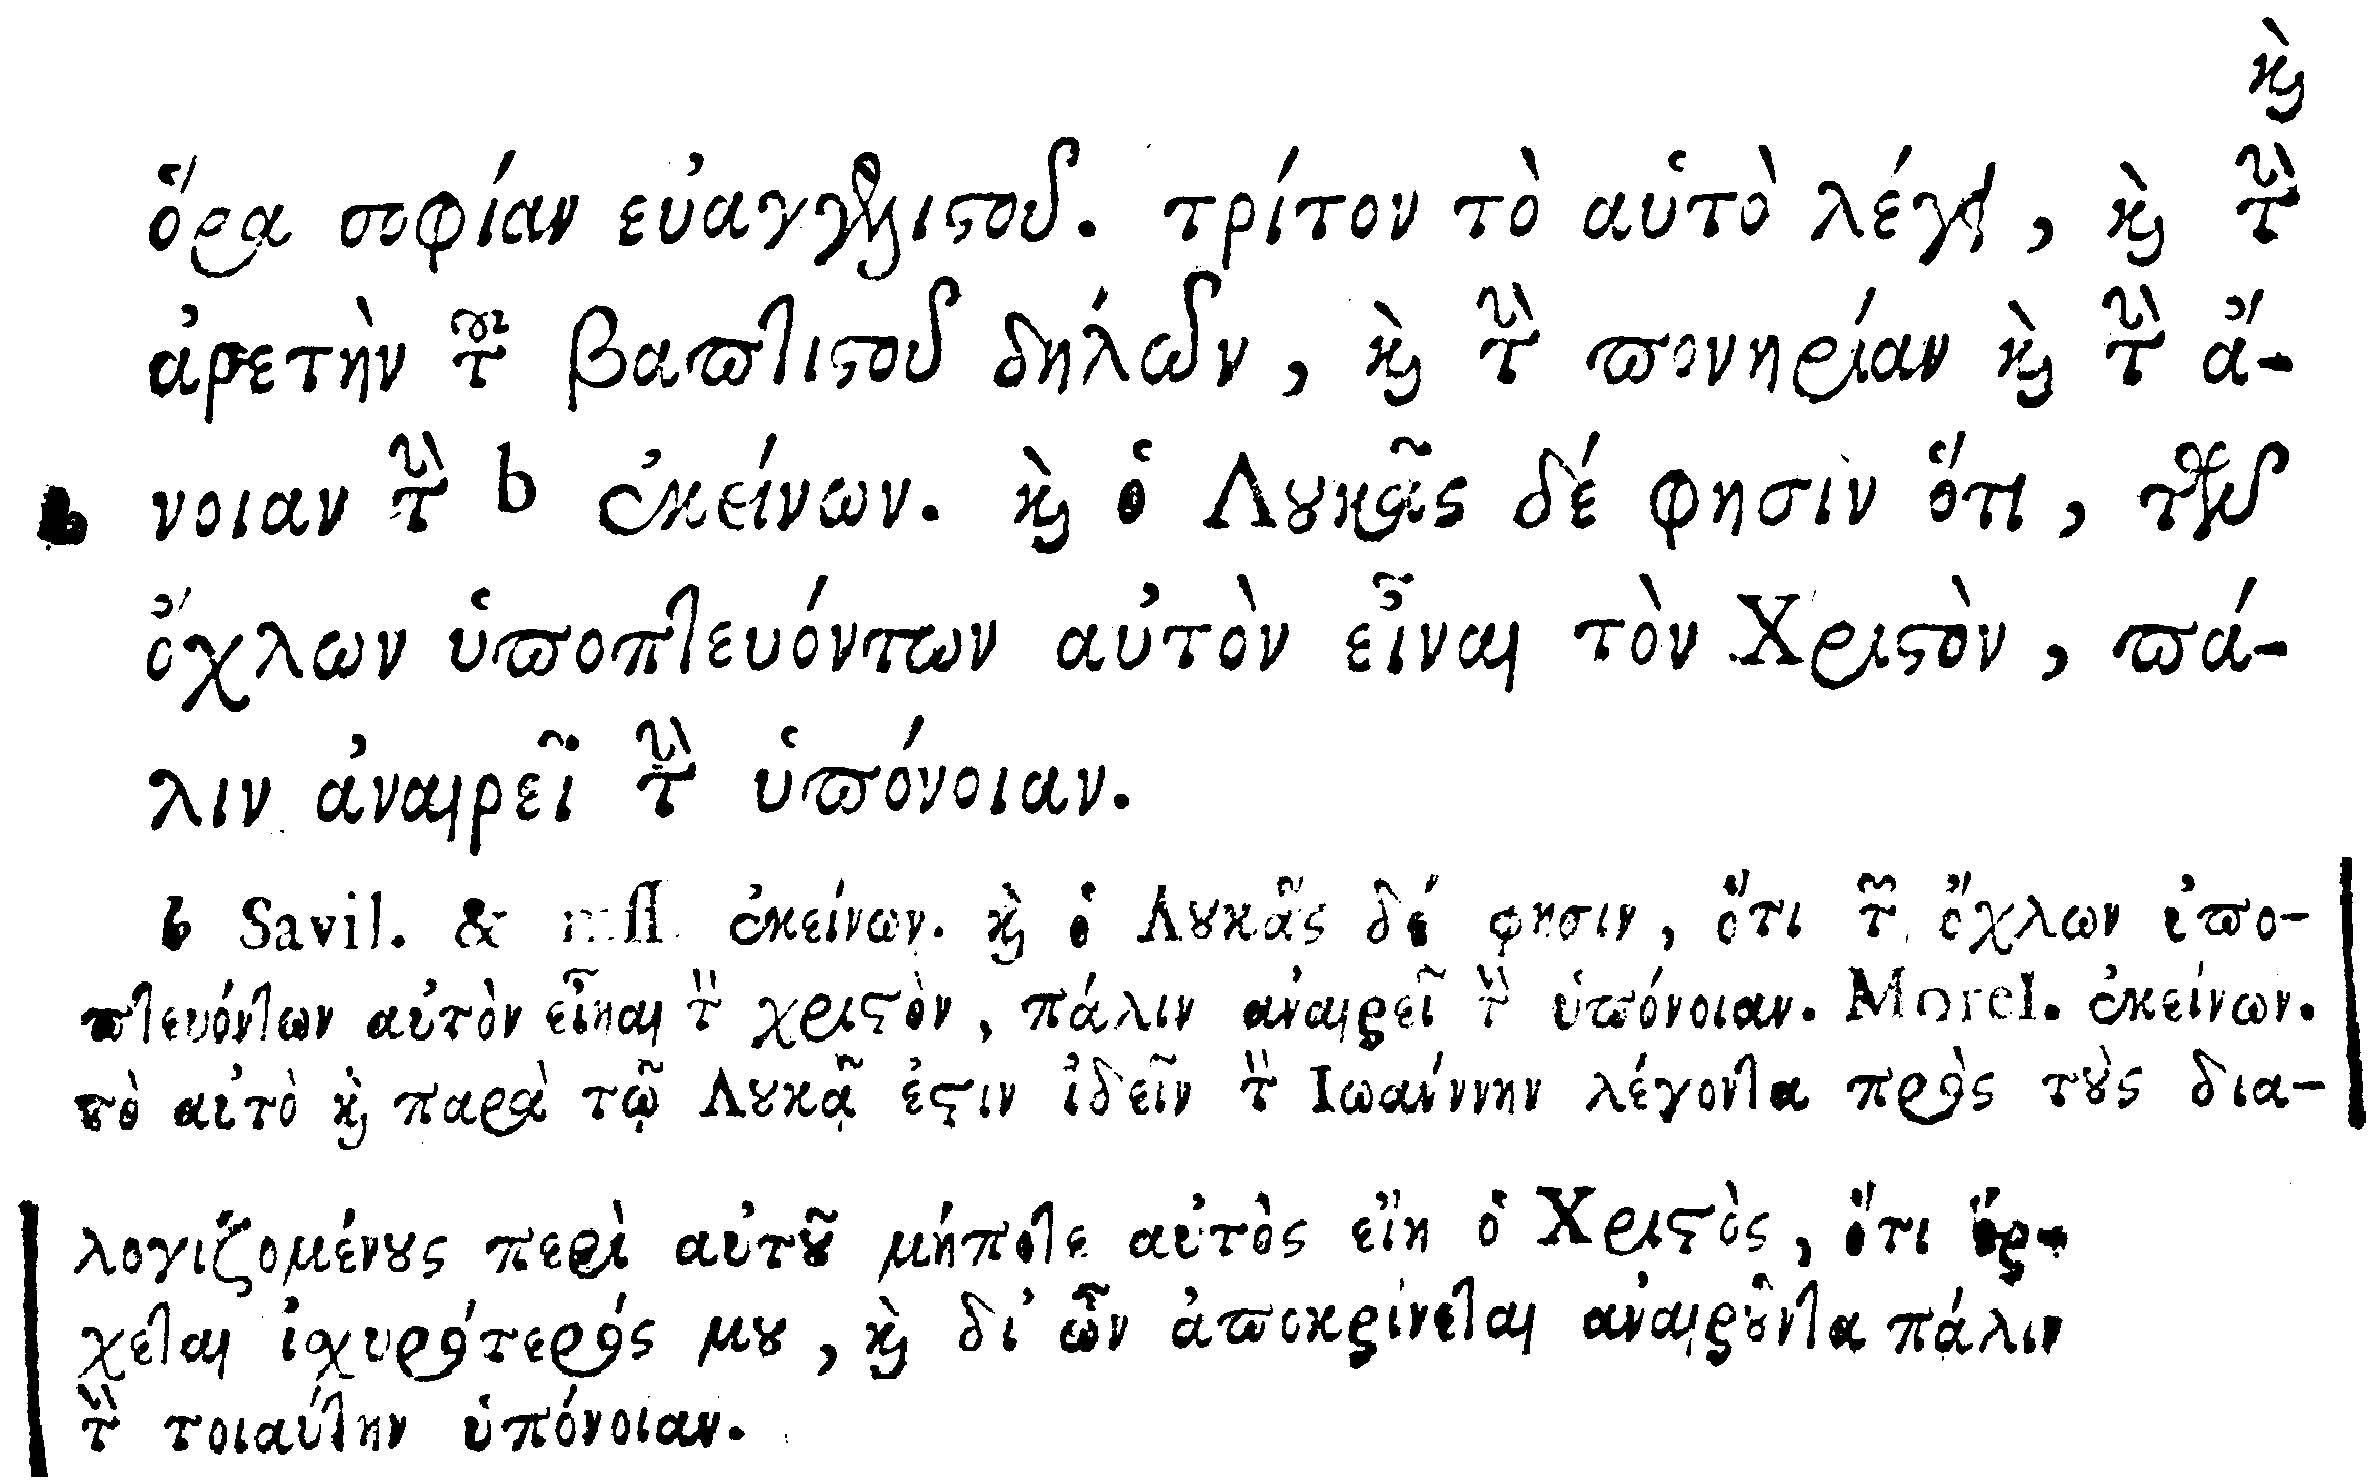 καὶ
ὅρα σοφίαν εὐαγγελιστοῦ. τρίτον τὸ αὐτὸ λέγει, καὶ τὴν
ἀρετὴν τοῦ βαπτιστοῦ δηλῶν, καὶ τὴν πονηρίαν καὶ τὴν ἄ-
b νοιαν τὴν b ἐκείνων. καὶ ὁ Λουκᾶς δέ φησὶν ὅτι, τῶν
ὄχλων ὑποπτευόντων αὐτὸν εἶναι τὸν Χριστὸν, πά-
λιν ἀναιρεῖ τὴν ὑπόνοιαν.
b Savil. & mss. ἐκείνων. καὶ ὁ Λουκᾶς δέ φησιν, ὅτι τῶν ὄχλων ὑπο-
πτευόντων αὐτὸν εἶναι τὸν χριστὸν, πάλιν ἀναιρεῖ τὴν ὑπόνοιαν. Morel. ἐκείνων.
τὸ αὐτὸ καὶ παρὰ τῷ Λουκᾷ ἐστιν ἰδεῖν τὸν Ἰωάννην λέγοντα πρὸς τοὺς δια-
λογιζομένους περὶ αὐτοῦ μήποτε αὐτὸς εἴη ὁ Χριστὸς, ὅτι ἔρ-
χεται ἰσχυρότερός μου, καὶ δι' ὧν ἀποκρίνεται ἀναιροῦντα πάλιν
τὴν τοιαύτην ὑπόνοιαν.